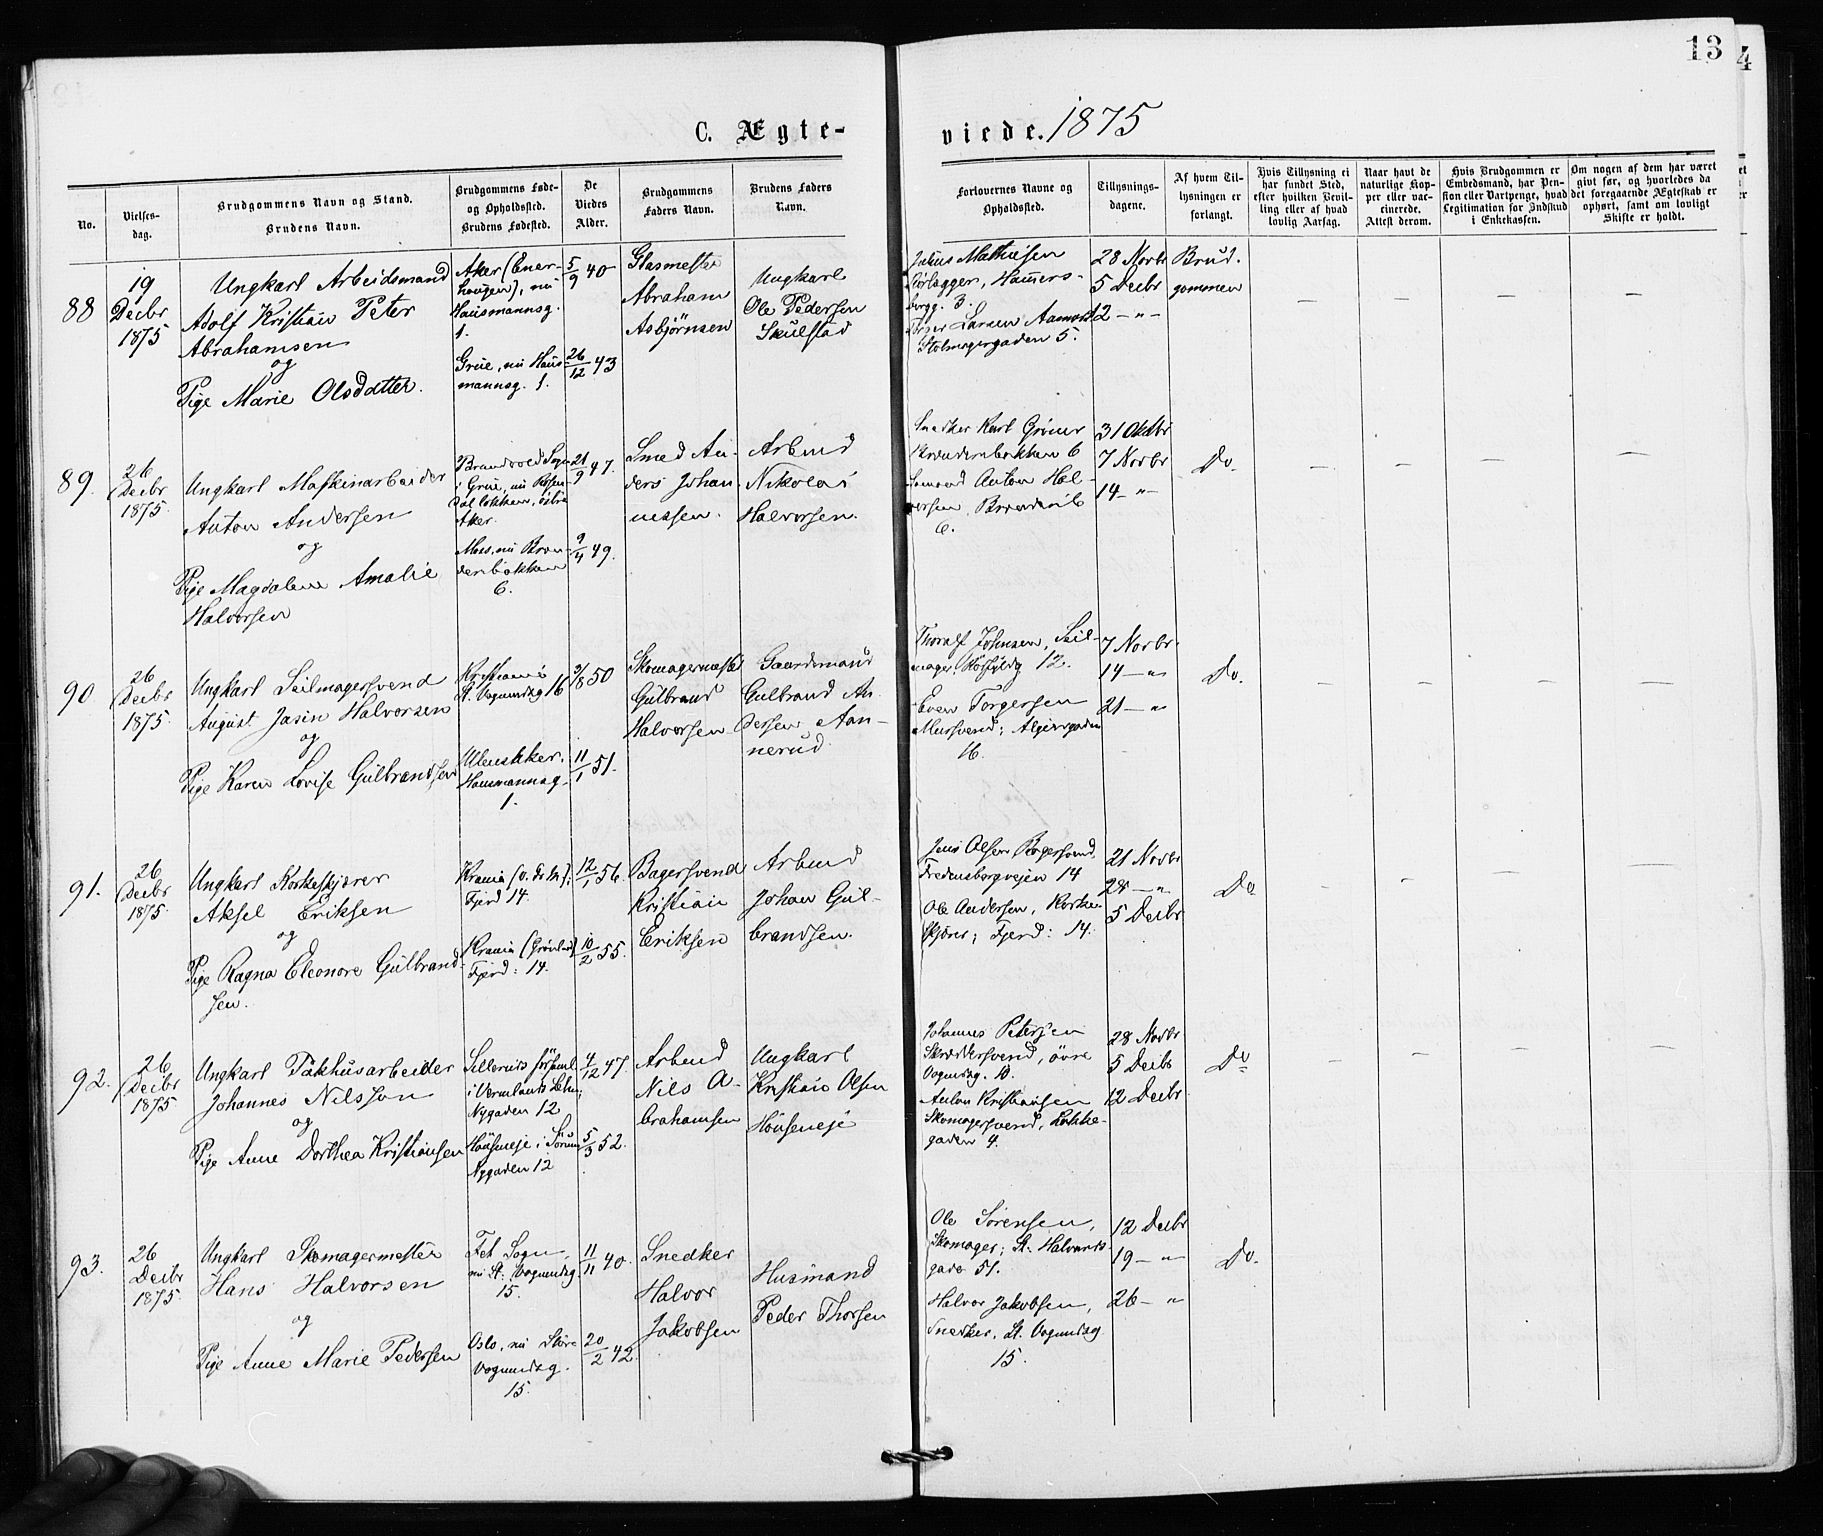 13
4
C. Ægte-
viede. 1875
No.
Vielses-
dag.
Brudgommens Navn og Stand.
Brudens Navn.
Brudgommens Føde-
og Opholdssted.
Brudens Fødested.
De
Viedes
Alder.
Brudgommens
Faders Navn.
Brudens Faders
Navn.
Forlovernes Navne og
Opholdssted.
Tillysnings-
dagene.
Af hvem Til-
lysningen er
forlangt.
Hvis Tillysning ei
har fundet Sted,
efter hvilken Bevil-
ling eller af hvad
lovlig Aarsag.
Naar havt de
naturlige Kop-
per eller vac-
cinerede.
Attest derom.
Hvis Brudgommen er
Embedsmand, har Pen-
sion eller Vartpenge, hvad
Legitimation for Indskud
i Enkekassen.
Om nogen af dem har været
givt før, og hvorledes da
det foregaaende Ægteskab er
ophørt, samt om lovligt
Skifte er holdt.
88
19
Decbr
1875
Ungkarl Arbeidsmand
Adolf Kristian Peter
Abrahamsen
og
Pige Marie Olsdatter.
Aker (Ener-
haugen), nu
Hausmannsg.
1.
Grue, nu Haus-
mannsg. 1.
5/9 40
26/12 43
Glasmester
Abraham
Asbjørnsen
Ungkarl
Ole Pedersen
Skulstad
Julius Mathisen
Hamers-
bergg. 3.
Larsen Aamodt
Stolmagergaden 5.
28 Novbr
5 Decbr
12 — "
Brud-
gommen
89.
26
Decbr
1875.
Ungkarl Maskinarbeider
Anton Andersen
og
Pige Magdalene Amalie
Halvorsen
Brandvold Sogn
i Grue, nu Rosen-
dalløkken, østre
Aker.
Moss, nu Bran-
denbakken
6.
21/9 47.
9/4 49.
Smed An-
ders Johan-
nessen.
Arbmd
Nikolai
Halvorsen.
Snedker Karl Gröner
6
Sömand Anton Hal-
vorsen
6.
31 Oktbr
7 Novbr
14 — "
Do.
90
26
Decbr
1875.
Ungkarl Seilmagersvend
August Jasin Halvorsen
og
Pige Karen Lovise Gulbrandsen
Kristiania
St. Vognmdsg 16
Ullensaker,
Hausmannsg.
1.
3/8 50
11/1 51.
Skomagermester
Gulbrand
Halvorsen
Gaardmand
Gulbrand An-
dersen Aan-
nerud.
Thoralf Johnsen, Seil-
mager, 12.
Even Torgersen
Mursvend; Algiergaden
16.
7 Novbr.
14 — "
21 — "
Do.
91.
26
Decbr
1875.
Ungkarl Korkeskjærer
Aksel Eriksen
og
Pige Ragna Eleonore Gulbrand-
sen.
Krania
Fjerd 14.
Krania (Grönland)
Fjerd: 14.
12/1 56.
10/2 55.
Bagersvend
Kristian
Eriksen
Arbmd
Johan Gul-
brandsen.
Jens Olsen Bagersvend,
Fredensborgvejen 14
Ole Andersen, Korke-
skjærer; Fjerd: 14.
21 Novbr
28 — "
5 Decbr
Do
92.
26
Decbr
1875
Ungkarl Pakhusarbeider
Johannes Nilsson
og
Pige Anne Dorthea Kristiansen
Silleruds församl.
i Vermlands Lehn;
Nygaden 12
Hauseneje i Sörum
Nygaden 12
4/12 47.
5/3 52.
Arbmd
Nils A-
brahamsen
Ungkarl
Kristian Olsen
Hauseneje
Johannes Petersen
Skræddersvend, övre
Vognmdsg. 10.
Anton Kristiansen
Skomagersvend, Løkke-
gaden 4.
28 Novbr
5 Decbr
12 Decbr
Do
93.
26
Decbr
1875.
Ungkarl Skomagermester
Hans Halvorsen
og
Pige Anne Marie Pedersen
Fet Sogn,
nu St. Vognmdsg.
15.
Oslo, nu Store
Vognmdsg.
15.
11/11 40.
20/2 42.
Snedker
Halvor
Jakobsen
Husmand
Peder Thorsen
Ole Sörensen,
Skomager; St. Halvards-
gade 51.
Halvor Jakobsen,
Snedker, St. Vognmdsg
15.
12 Decbr
19 — "
26 — "
Do.